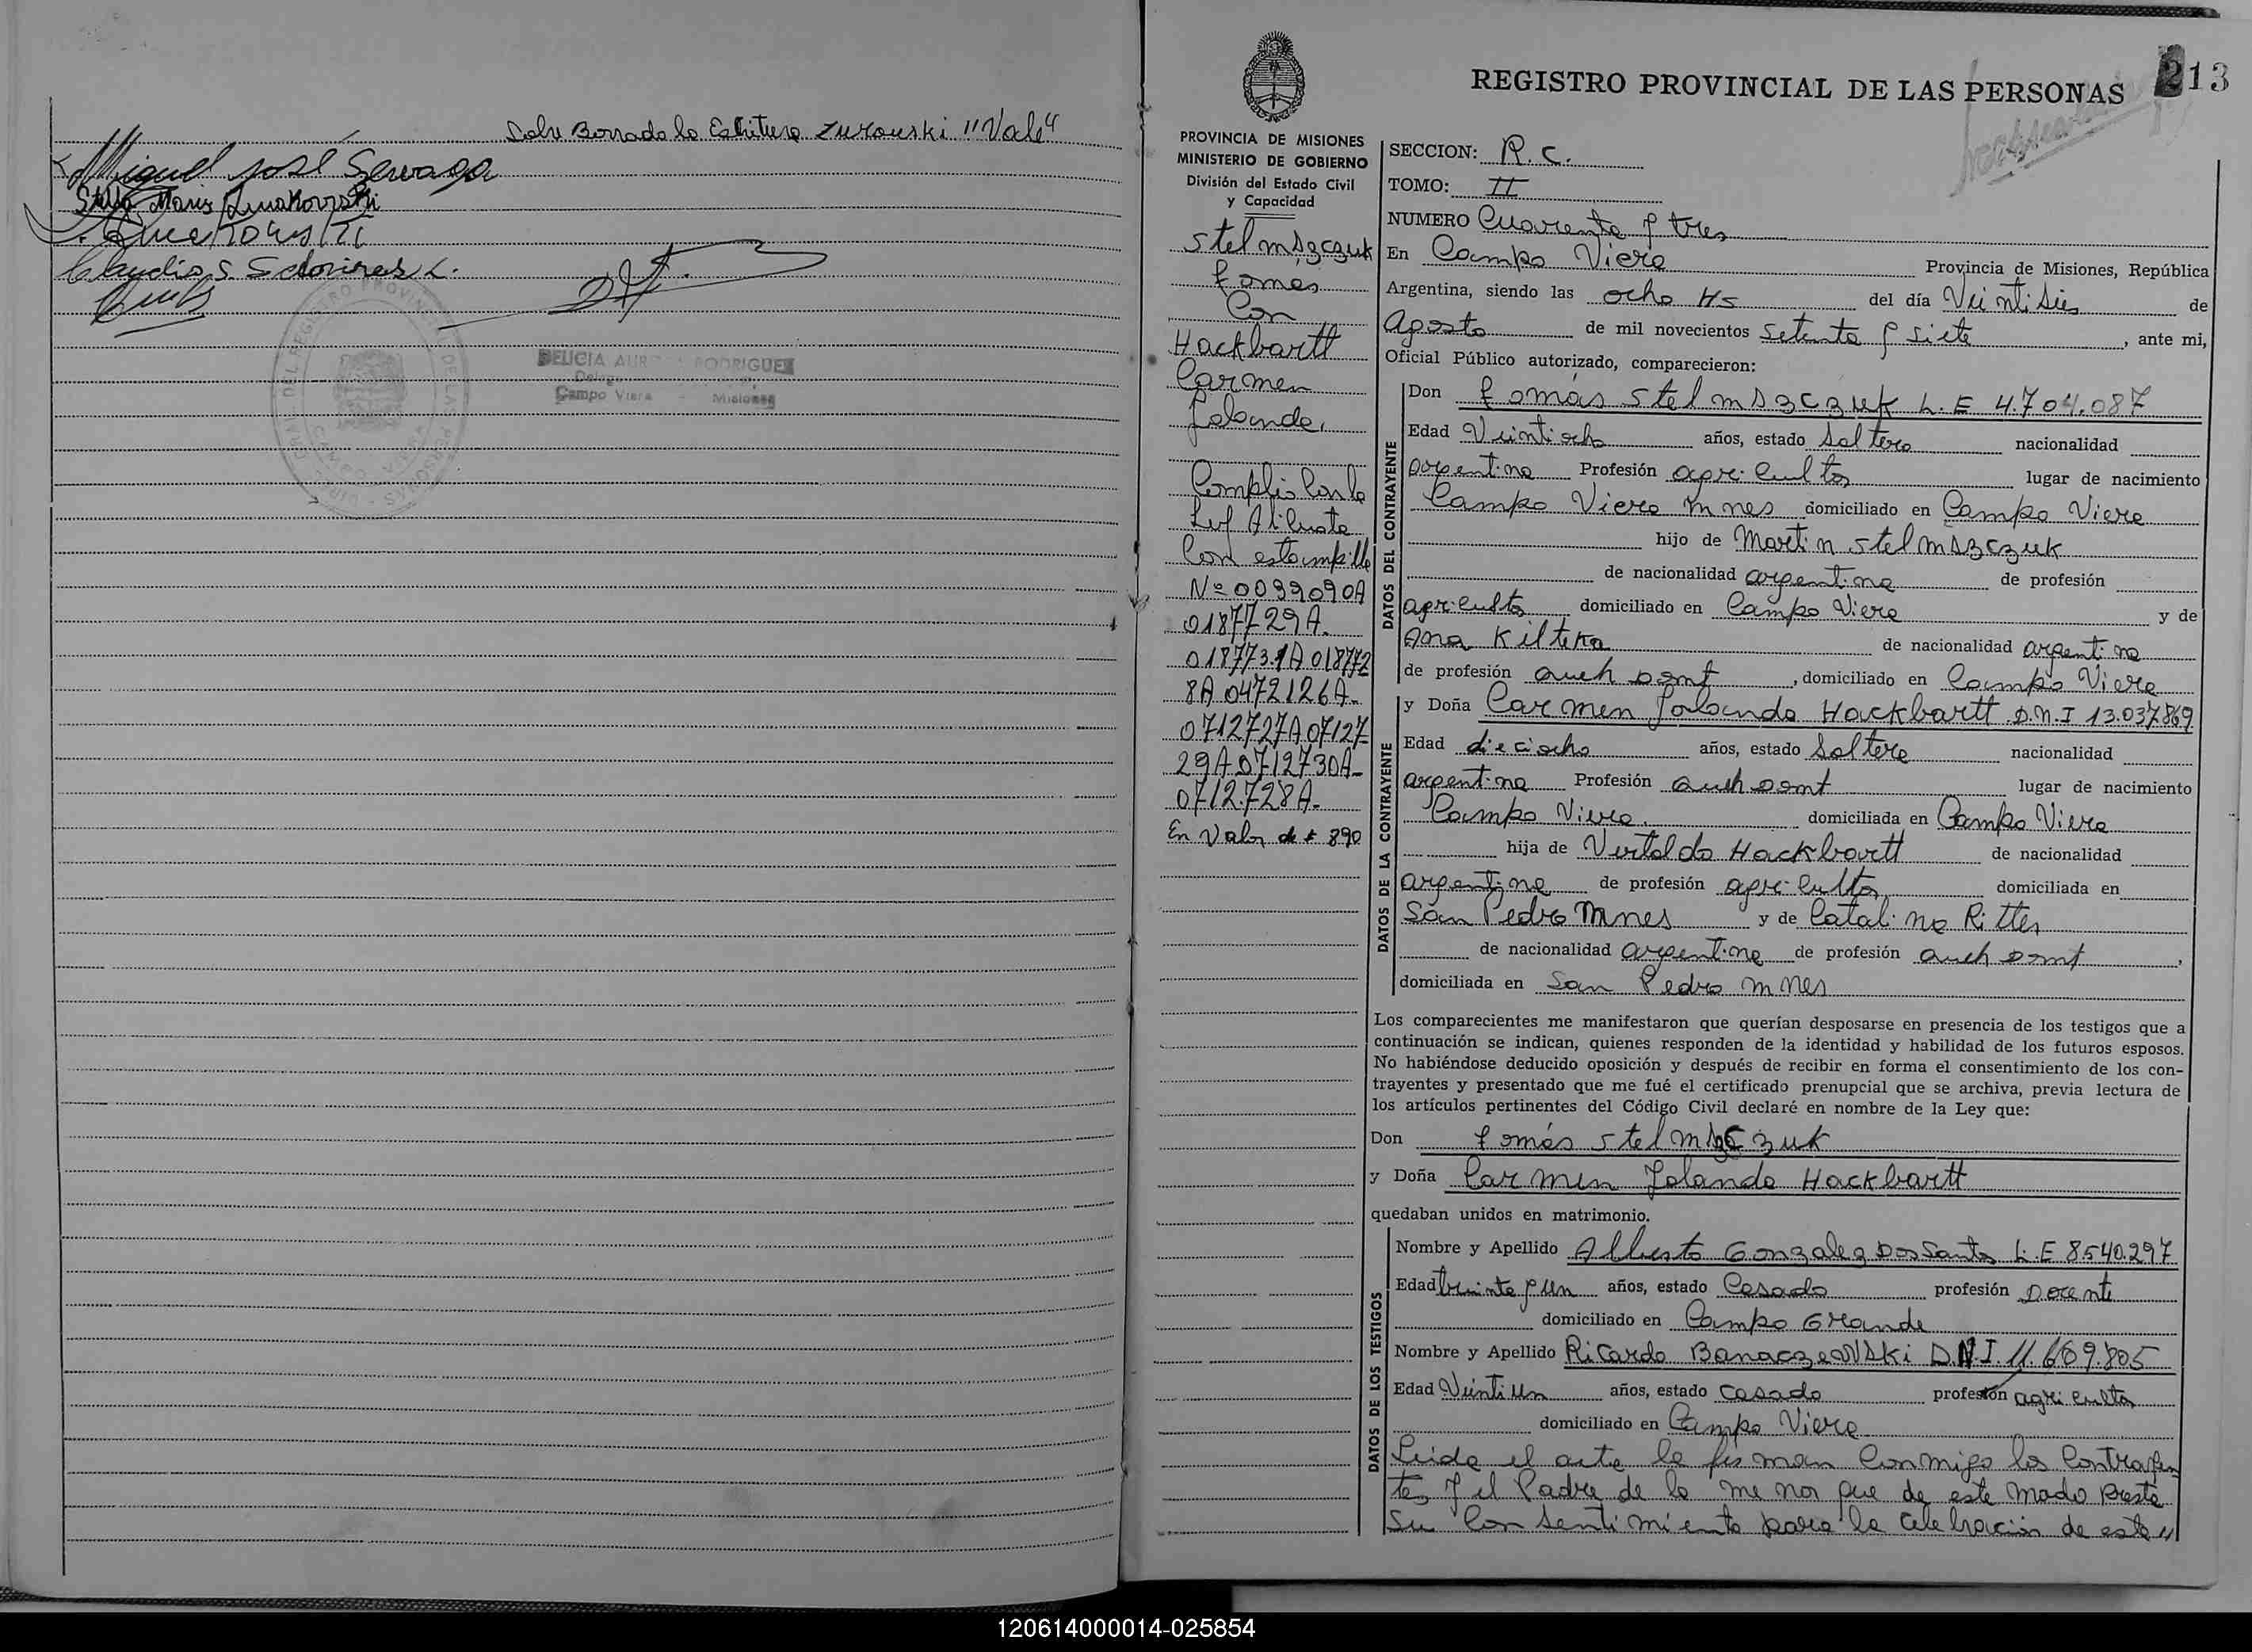 Sobre Borrado la Escritura Zurouski "Vale"
Miguel José
Stella Maris
Claudio S.
DELICIA AUR RODRIGUEZ
Campo Viera - Misiones
213
REGISTRO PROVINCIAL DE LAS PERSONAS
PROVINCIA DE MISIONES
MINISTERIO DE GOBIERNO
División del Estado Civil
y Capacidad
Stelmszczuk
Tomás
Con
Hackbartt
Carmen
Jolanda
Complio Con la
Ley Alicuota
Con estampilla
Nº 0099090A
0187729A.
0187731A 018772
8A 0472126A-
0712727A 07127
29A 0712730A-
0712728A-
En Valor de $ 890
SECCION: R.C.
TOMO: II
NUMERO Cuarenta y tres
En Campo Viera Provincia de Misiones, República
Argentina, siendo las ocho Hs del día Veintiseis de
Agosto de mil novecientos setenta y siete, ante mi,
Oficial Público autorizado, comparecieron:
DATOS DEL CONTRAYENTE
Don Tomás Stelmszczuk L.E 4.704.087
Edad Veintiocho años, estado Soltero nacionalidad
argentina Profesión agricultor lugar de nacimiento
Campo Viera Mnes domiciliado en Campo Viera
hijo de Martin Stelmszczuk
de nacionalidad argentina de profesión
agricultor domiciliado en Campo Viera y de
Ana Kilteka de nacionalidad argentina
de profesión Queh Domt, domiciliado en Campo Viera
DATOS DE LA CONTRAYENTE
y Doña Carmen Jolanda Hackbartt D.N.I 13.037.869
Edad dieciocho años, estado Soltera nacionalidad
argentina Profesión Queh Domt lugar de nacimiento
Campo Viera. domiciliada en Campo Viera
hija de Vertoldo Hackbartt de nacionalidad
argentina de profesión agricultor domiciliada en
San Pedro Mnes y de Catalina Ritter
de nacionalidad argentina de profesión Queh Domt,
domiciliada en San Pedro Mnes
Los comparecientes me manifestaron que querían desposarse en presencia de los testigos que a
continuación se indican, quienes responden de la identidad y habilidad de los futuros esposos.
No habiéndose deducido oposición y después de recibir en forma el consentimiento de los con-
trayentes y presentado que me fué el certificado prenupcial que se archiva, previa lectura de
los artículos pertinentes del Código Civil declaré en nombre de la Ley que:
Don Tomás Stelmszczuk
y Doña Carmen Jolanda Hackbartt
quedaban unidos en matrimonio.
DATOS DE LOS TESTIGOS
Nombre y Apellido Alberto Gonzalez Dos Santos L.E 8.540.297
Edad treinta y un años, estado Casado profesión Docente
domiciliado en Campo Grande
Nombre y Apellido Ricardo Banaczewski D.N.I. 11.669.805
Edad Veintiun años, estado casado profesión agricultor
domiciliado en Campo Viera
Leida el acta la firman Conmigo los Contrayen
tes y el Padre de la menor que de este modo presta
su Consentimiento para la celebración de este "
120614000014-025854